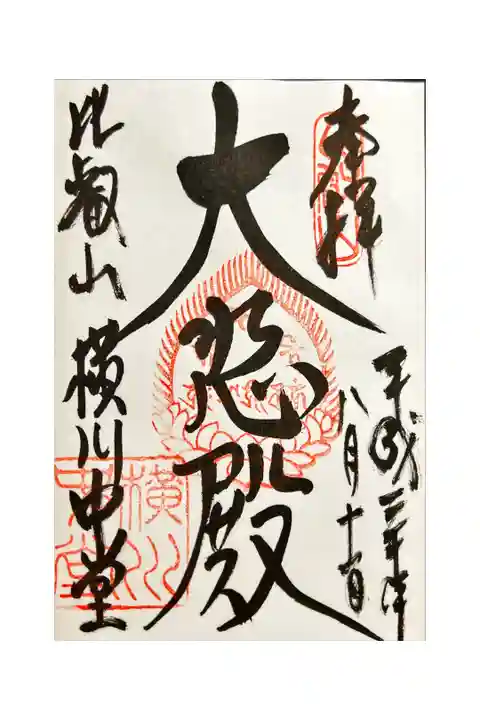 奉拝
平成二十年
八月十日
大悲殿
比叡山 横川中堂
横川中堂